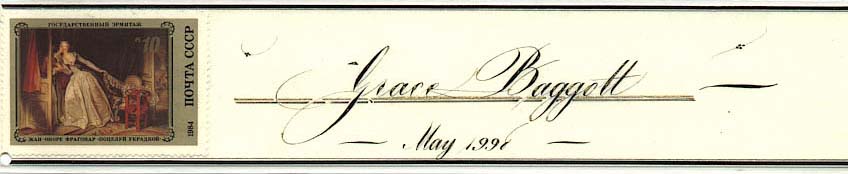 ГОСУДАРСТВЕННЫЙ ЭРМИТАЖ
10
ПОЧТА СССР
1984
ЖАН ОНОРЕ ФРАГОНАР ПОЦЕЛУЙ УКРАДКОЙ
Grace Baggott
May 1998